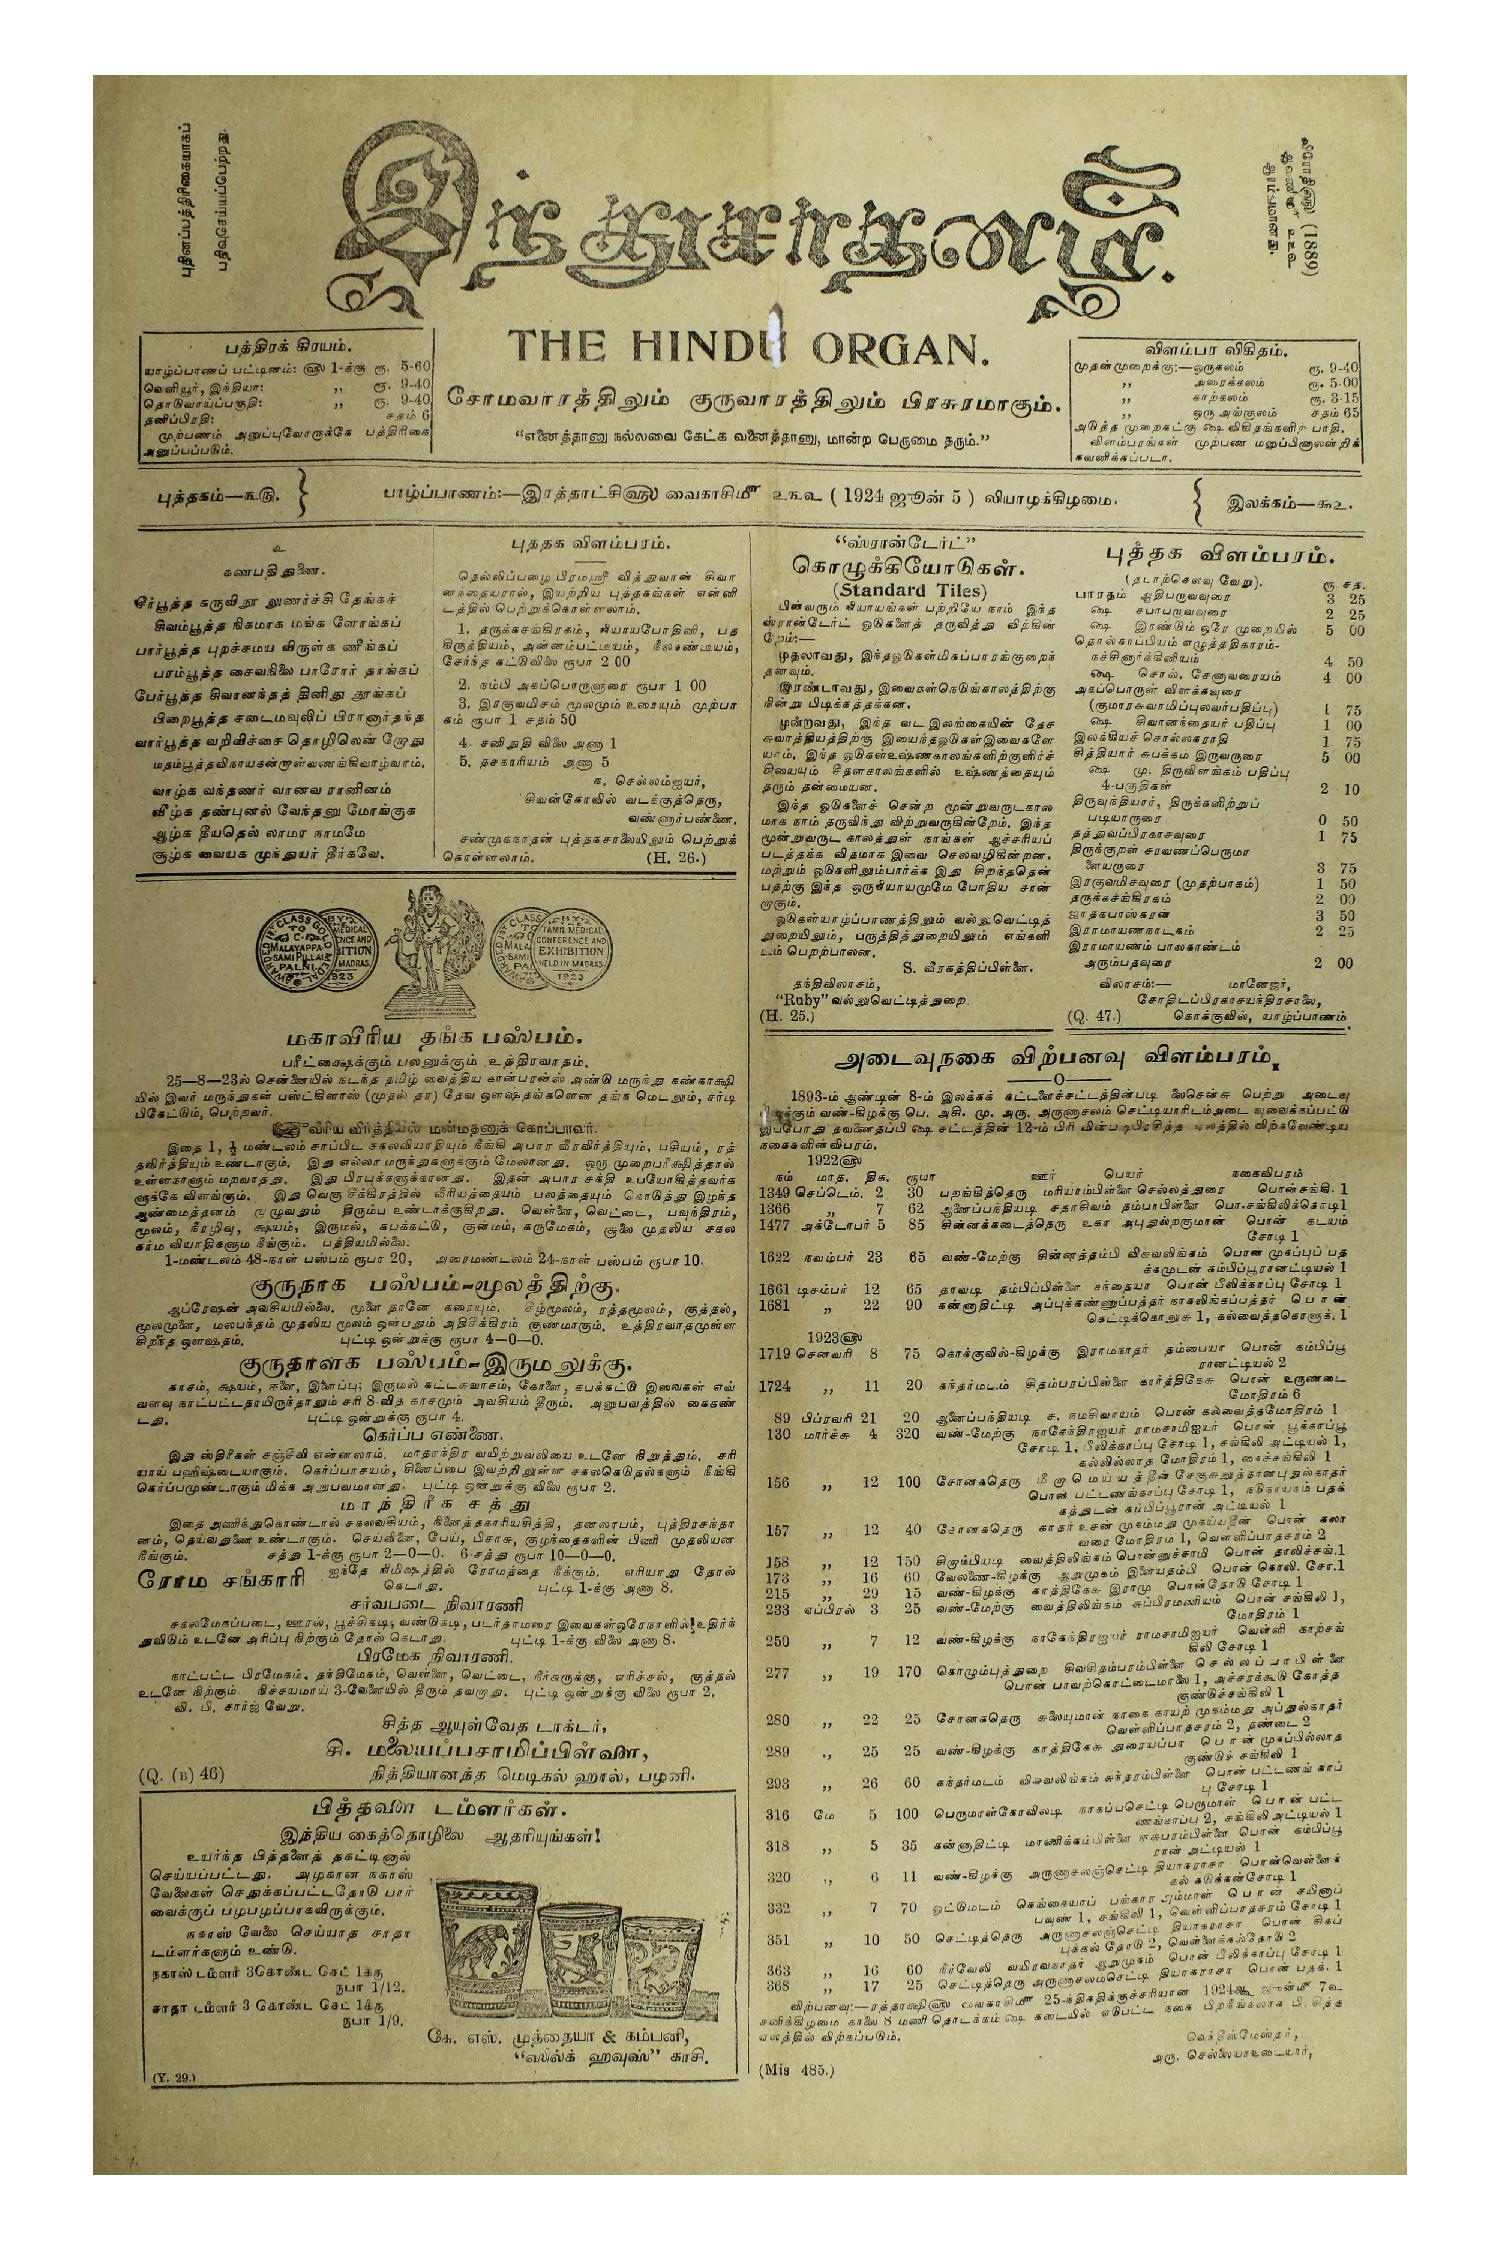 புதினப்பத்திரிகையாகப்
பதிவுசெய்யப்பெற்றது.
இந்துசாதனம்.
(1889)
THE HINDU ORGAN.
சோமவாரத்திலும் குருவாரத்திலும் பிரசுரமாகும்.
“எனைத்தானு நல்லவை கேட்க வனைத்தானு, மான்ற பெருமை தரும்.”
பத்திரக் கிரயம்.
யாழ்ப்பாணப் பட்டினம்: ௵ 1-க்கு ரூ. 5-60
வெளியூர், இந்தியா: ,, ரூ. 9-40
தொடுவாய்ப்பகுதி: ,, ரூ. 9-40
தனிப்பிரதி: சதம் 6
முற்பணம் அனுப்புவோருக்கே பத்திரிகை
அனுப்பப்படும்.
விளம்பர விகிதம்.
முதன்முறைக்கு:—ஒருகலம் ரூ. 9-40
,, அரைக்கலம் ரூ. 5-00
,, காற்கலம் ரூ. 3-15
,, ஒரு அங்குலம் சதம் 65
அடுத்த முறைகட்கு ௸ விகிதங்களிற் பாதி.
விளம்பரங்கள் முற்பண மனுப்பினாலன்றிக்
கவனிக்கப்படா.
புத்தகம்—௩௫.
யாழ்ப்பாணம்:—இரத்தாட்சி௵ வைகாசி௴ ௨௩௨ ( 1924 ஜூன் 5 ) வியாழக்கிழமை.
இலக்கம்—௯௨.
உ
கணபதி துணை.
சீர்பூத்த கருவிநூ லுணர்ச்சி தேங்கச்
சிவம்பூத்த நிகமாக மங்க ளோங்கப்
பார்பூத்த புறச்சமய விருள்க ணீங்கப்
பரம்பூத்த சைவநிலை பாரோர் தாங்கப்
பேர்பூத்த சிவானந்தத் தினிது தூங்கப்
பிறைபூத்த சடைமவுலிப் பிரானார்தந்த
வார்பூத்த வறிவிச்சை தொழிலென் றோது
மதம்பூத்தவிநாயகன்றாள்வணங்கிவாழ்வாம்.
வாழ்க வந்தணர் வானவ ரானினம்
வீழ்க தண்புனல் வேந்தனு மோங்குக
ஆழ்க தீயதெல் லாமர நாமமே
சூழ்க வையக முந்துயர் தீர்கவே.
புத்தக விளம்பரம்.
தெல்லிப்பழை பிரமஸ்ரீ வித்துவான் சிவா
னந்தையரால், இயற்றிய புத்தகங்கள் என்னி
டத்தில் பெற்றுக்கொள்ளலாம்.
1. தருக்கசங்கிரகம், நியாயபோதினி, பத
கிருத்தியம், அன்னம்பட்டீயம், நீலகண்டீயம்,
சேர்ந்த கட்டுவிலை ரூபா 2 00
2. நம்பி அகப்பொருளுரை ரூபா 1 00
3. இரகுவமிசம் மூலமும் உரையும் முற்பா
கம் ரூபா 1 சதம் 50
4. சனிதுதி விலை அணா 1
5. தசகாரியம் அணா 5
க. செல்லம்ஐயர்,
சிவன்கோவில் வடக்குத்தெரு,
வண்ணார்பண்ணை.
சண்முகநாதன் புத்தகசாலையிலும் பெற்றுக்
கொள்ளலாம். (H. 26.)
“ஸ்ரான்டேர்ட்”
கொழுக்கியோடுகள்.
(Standard Tiles)
பின்வரும் நியாயங்கள் பற்றியே நாம் இந்த
ஸ்ரான்டேர்ட் ஓடுகளைத் தருவித்து விற்கின்
றோம்:—
முதலாவது, இந்தஓடுகள்மிகப்பாரங்குறைந்
தனவும்.
இரண்டாவது, இவைகள்நெடுங்காலத்திற்கு
நின்று பிடிக்கத்தக்கன.
மூன்றாவது, இந்த வட இலங்கையின் தேச
சுவாத்தியத்திற்கு இயைந்தஓடுகள்இவைகளே
யாம். இந்த ஓடுகள்உஷ்ணகாலங்களிற்குளிர்ச்
சியையும் சீதளகாலங்களில் உஷ்ணத்தையும்
தரும் தன்மையன.
இந்த ஓடுகளைச் சென்ற மூன்றுவருடகால
மாக நாம் தருவித்து விற்றுவருகின்றோம். இந்த
மூன்றுவருட காலத்துள் நாங்கள் ஆச்சரியப்
படத்தக்க விதமாக இவை செலவழிகின்றன.
மற்றும் ஓடுகளிலும்பார்க்க இது சிறந்ததென்
பதற்கு இந்த ஒருநியாயமுமே போதிய சான்
றாகும்.
ஓடுகள்யாழ்ப்பாணத்திலும் வல்லுவெட்டித்
துறையிலும், பருத்தித்துறையிலும் எங்களி
டம் பெறற்பாலன.
S. வீரகத்திப்பிள்ளை.
தந்திவிலாசம்,
“Ruby” வல்லுவெட்டித்துறை.
(H. 25.)
புத்தக விளம்பரம்.
(தபாற்செலவு வேறு). ரூ சத.
பாரதம் ஆதிபருவவுரை 3 25
௸ சபாபருவவுரை 2 25
௸ இரண்டும் ஒரே முறையில் 5 00
தொல்காப்பியம் எழுத்ததிகாரம்-
நச்சினார்க்கினியம் 4 50
௸ சொல். சேனாவரையம் 4 00
அகப்பொருள் விளக்கவுரை
(குமாரசுவாமிப்புலவர்பதிப்பு) 1 75
௸ சிவானந்தையர் பதிப்பு 1 00
இலக்கியச் சொல்லகராதி 1 75
சித்தியார் சுபக்கம் இருவருரை 5 00
௸ மு. திருவிளங்கம் பதிப்பு
4-பகுதிகள் 2 10
திருவுந்தியார், திருக்களிற்றுப்
படியாருரை 0 50
தத்துவப்பிரகாசவுரை 1 75
திருக்குறள் சரவணப்பெருமா
ளையருரை 3 75
இரகுவமிசவுரை (முதற்பாகம்) 1 50
தருக்கச்சங்கிரகம் 2 00
ஜாதகபாஸ்கரன் 3 50
இராமாயணநாடகம் 2 25
இராமாயணம் பாலகாண்டம்
அரும்பதவுரை 2 00
விலாசம்:— மானேஜர்,
சோதிடப்பிரகாசயந்திரசாலை,
(Q. 47.) கொக்குவில், யாழ்ப்பாணம்.
மகாவீரிய தங்க பஸ்பம்.
பரீட்க்ஷைக்கும் பலனுக்கும் உத்திரவாதம்.
25—8—23ல் சென்னையில் நடந்த தமிழ் வைத்திய கான்பரன்ஸ் அண்டு மருந்து கண்காக்ஷி
யில் இவர் மருந்துகள் பஸ்ட்கிளாஸ் (முதல் தர) தேவ ஔஷதங்களென தங்க மெடலும், சர்டி
பிகேட்டும், பெற்றவர்.
வீரிய விர்த்தியில் மன்மதனுக் கொப்பாவர்.
இதை 1, ½ மண்டலம் சாப்பிட சகலவியாதியும் நீங்கி அபார வீரவிர்த்தியும், பசியும், ரத்
தவிர்த்தியும் உண்டாகும். இது எல்லா மருந்துகளுக்கும் மேலானது. ஒரு முறைபரீக்ஷித்தால்
உள்ளகாளும் மறவாதது. இது பிரபுக்களுக்கானது. இதன் அபார சக்தி உபயோகித்தவர்க
ளுக்கே விளங்கும். இது வெகு சீக்கிரத்தில் வீரியத்தையும் பலத்தையும் கொடுத்து இழந்த
ஆண்மைத்தனம் முழுவதும் திரும்ப உண்டாக்குகிறது. வெள்ளை, வெட்டை, பவுந்திரம்,
மூலம், நீரழிவு, க்ஷயம், இருமல், கபக்கட்டு, குன்மம், கருமேகம், சூலை முதலிய சகல
கர்ம வியாதிகளும் நீங்கும். பத்தியமில்லை.
1-மண்டலம் 48-நாள் பஸ்பம் ரூபா 20, அரைமண்டலம் 24-நாள் பஸ்பம் ரூபா 10.
குருநாக பஸ்பம்-மூலத்திற்கு.
ஆப்ரேஷன் அவசியமில்லை. முளை தானே கரையும். சீழ்மூலம், ரத்தமூலம், குத்தல்,
மூலமுளை, மலபந்தம் முதலிய மூலம் ஒன்பதும் அதிசீக்கிரம் குணமாகும். உத்திரவாதமுள்ள
சிறந்த ஔஷதம். புட்டி ஒன்றுக்கு ரூபா 4—0—0.
குருதாளக பஸ்பம்-இருமலுக்கு.
காசம், க்ஷயம், ஈளை, இளைப்பு, இருமல் கட்டசுவாசம், கோளை, கபக்கட்டு இவைகள் எவ்
வளவு நாட்பட்டதாயிருந்தாலும் சரி 8-வித காசமும் அவசியம் தீரும். அனுபவத்தில் கைகண்
டது. புட்டி ஒன்றுக்கு ரூபா 4.
கெர்ப்ப எண்ணை.
இது ஸ்திரீகள் சஞ்சீவி என்னலாம். மாதாந்திர வயிற்றுவலியை உடனே நிறுத்தும். சரி
யாய் பஹிஷ்டையாகும். கெர்ப்பாசயம், சினைப்பை இவற்றிலுள்ள சகலகெடுதல்களும் நீங்கி
கெர்ப்பமுண்டாகும் மிக்க அநுபவமானது. புட்டி ஒன்றுக்கு விலை ரூபா 2.
மாந்திரீக சத்து
இதை அணிந்துகொண்டால் சகலவசியம், நினைத்தகாரியசித்தி, தனலாபம், புத்திரசந்தா
னம், தெய்வதுணை உண்டாகும். செய்வினை, பேய், பிசாசு, குழந்தைகளின் பிணி முதலியன
நீங்கும். சத்து 1-க்கு ரூபா 2—0—0. 6-சத்து ரூபா 10—0—0.
ரோம சங்காரி ஐந்தே நிமிஷத்தில் ரோமத்தை நீக்கும். எரியாது தோல்
கெடாது. புட்டி 1-க்கு அணா 8.
சர்வபடை நிவாரணி
சகலமேகப்படை, ஊரல், பூச்சிகடி, வண்டுகடி, படர்தாமரை இவைகள்ஒரேநாளில் உதிர்ந்
துவிடும் உடனே அரிப்பு நிற்கும் தோல் கெடாது. புட்டி 1-க்கு விலை அணா 8.
பிரமேக நிவாரணி.
நாட்பட்ட பிரமேகம், தந்திமேகம், வெள்ளை, வெட்டை, நீர்சுருக்கு, எரிச்சல், குத்தல்
உடனே நிற்கும். நிச்சயமாய் 3-வேளையில் தீரும் தவறாது. புட்டி ஒன்றுக்கு விலை ரூபா 2.
வி. பி. சார்ஜ் வேறு.
சித்த ஆயுள்வேத டாக்டர்,
சி. மலையப்பசாமிப்பிள்ளை,
(Q. (B) 46) நித்தியானந்த மெடிகல் ஹால், பழனி.
பித்தளை டம்ளர்கள்.
இந்திய கைத்தொழிலை ஆதரியுங்கள்!
உயர்ந்த பித்தளைத் தகட்டினால்
செய்யப்பட்டது. அழகான நகாஸ்
வேலைகள் செதுக்கப்பட்டதோடு பார்
வைக்குப் பழபழப்பாகவிருக்கும்.
நகாஸ் வேலை செய்யாத சாதா
டம்ளர்களும் உண்டு.
நகாஸ் டம்ளர் 3கொண்ட செட் 1க்கு
ரூபா 1/12.
சாதா டம்ளர் 3 கொண்ட செட் 1க்கு
ரூபா 1/9.
கே. எஸ். முத்தையா & கம்பனி,
“ஸில்க் ஹவுஸ்” காசி.
(Y. 29.)
அடைவுநகை விற்பனவு விளம்பரம்.
—O—
1893-ம் ஆண்டின் 8-ம் இலக்கக் கட்டளைச்சட்டத்தின்படி லைசென்சு பெற்று அடைவு
பிடிக்கும் வண்-கிழக்கு பெ. அசி. மு. அரு. அருணாசலம் செட்டியாரிடம்அடைவுவைக்கப்பட்டு
இப்போது தவணைதப்பி ௸ சட்டத்தின் 12-ம் பிரிவின்படிபிரசித்த ஏலத்தில் விற்கவேண்டிய
நகைகளின்விபரம்.
1922௵
நம் மாத. திக. ரூபா ஊர் பெயர் நகைவிபரம்
1349 செப்டெம். 2 30 பறங்கித்தெரு மரியாம்பிள்ளை செல்லத்துரை பொன்சங்கி. 1
1366 ,, 7 62 ஆனைப்பந்தியடி சதாசிவம் தம்பாபிள்ளை பொ.சங்கிலிக்கொடி1
1477 அக்டோபர் 5 85 சின்னக்கடைத்தெரு உகா அபுதுல்றகுமான் பொன் கடயம்
சோடி 1
1622 நவம்பர் 23 65 வண்-மேற்கு சின்னத்தம்பி விசுவலிங்கம் பொன் முகப்புப் பத
க்கமுடன் கம்பிப்பூரானட்டியல் 1
1661 டிசம்பர் 12 65 தாவடி தம்பிப்பிள்ளை சந்தையா பொன் பீலிக்காப்பு சோடி 1
1681 ,, 22 90 கன்னாதிட்டி அப்புக்கண்ணுப்பத்தர் நாகலிங்கப்பத்தர் பொன்
கெட்டிக்கொலுசு 1, கல்வைத்தகொளுக். 1
1923௵
1719 சனவரி 8 75 கொக்குவில்-கிழக்கு இராமநாதர் தம்பையா பொன் கம்பிப்பூ
ரானட்டியல் 2
1724 ,, 11 20 கந்தர்மடம் சிதம்பரப்பிள்ளை கார்த்திகேசு பொன் உருண்டை
மோதிரம் 6
89 பிப்ரவரி 21 20 ஆனைப்பந்தியடி ச. நமசிவாயம் பொன் கல்வைத்தமோதிரம் 1
130 மார்ச்சு 4 320 வண்-மேற்கு நாகேந்திரஐயர் ராமசாமிஐயர் பொன் பூக்காப்பூ
சோடி 1, பீலிக்காப்பு சோடி 1, சங்கிலி அட்டியல் 1,
கல்லில்லாத மோதிரம் 1, கைச்சங்கிலி 1
156 ,, 12 100 சோனகதெரு
பொன் பட்டணங்காப்பு சோடி 1,
கத்துடன் கம்பிப்பூரான் அட்டியல் 1
157 ,, 12 40 சோனகதெரு காதர் உசன் முகம்மது முகய்யதீன் பொன் கலா
வரை மோதிரம் 1, வெள்ளிப்பாதசரம் 2
158 ,, 12 150 சிறாம்பியடி வைத்திலிங்கம் பொன்னுச்சாமி பொன் தாலிச்சங்.1
173 ,, 16 60 வேலணை-கிழக்கு ஆறுமுகம் இளையதம்பி பொன் கொலி. சோ.1
215 ,, 29 15 வண்-கிழக்கு காத்திகேசு இராமு பொன்தோடு சோடி 1
233 ஏப்பிரல் 3 25 வண்-மேற்கு வைத்திலிங்கம் சுப்பிரமணியம் பொன் சங்கிலி 1,
மோதிரம் 1
250 ,, 7 12 வண்-கிழக்கு நாகேந்திரஐயர் ராமசாமிஐயர் வெள்ளி காற்சங்
கிலி சோடி 1
277 ,, 19 170 கொழும்புத்துறை சிவசிதம்பரம்பிள்ளை செல்லப்பாபிள்ளை
பொன் பாவற்கொட்டைமாலை 1, அச்சரக்கூடு கோத்த
குண்டுச்சங்கிலி 1
280 ,, 22 25 சோனகதெரு சுலையுமான் நாகை காயற் முகம்மது அப்துல்காதர்
வெள்ளிப்பாதசரம் 2, தண்டை 2
289 ,, 25 25 வண்-கிழக்கு காத்திகேசு துரையப்பா பொன் முகப்பில்லாத
குண்டுச் சங்கிலி 1
293 ,, 26 60 கந்தர்மடம் விசுவலிங்கம் சுந்தரம்பிள்ளை பொன் பட்டணங் காப்
பு சோடி 1
316 மே 5 100 பெருமாள்கோவிலடி நாகப்பசெட்டி பெருமாள் பொன் பட்ட
ணங்காப்பு 2, சங்கிலி அட்டியல் 1
318 ,, 5 35 கன்னாதிட்டி மாணிக்கம்பிள்ளை ஈசுபரம்பிள்ளை பொன் கம்பிப்பூ
ரான் அட்டியல் 1
320 ,, 6 11 வண்-கிழக்கு அருணாசலஞ்செட்டி தியாகராசா பொன்வெள்ளைக்
கல் கடுக்கன்சோடி 1
332 ,, 7 70 ஓட்டுமடம் பொன் சயினாப்
பவுண் 1, சங்கிலி 1, வெள்ளிப்பாதசரம் சோடி 1
351 ,, 10 50 செட்டித்தெரு அருணாசலஞ்செட்டி தியாகராசா பொன் சிகப்
புக்கல் தோடு 2, வெள்ளைக்கல்தோடு 2
363 ,, 16 60 நீர்வேலி வயிரவநாதர் ஆறுமுகம் பொன் பீலிக்காப்பு சோடி 1
368 ,, 17 25 செட்டித்தெரு அருணாசலம்செட்டி தியாகராசா பொன் பதக். 1
விற்பனவு:—ரத்தாக்ஷி௵ வைகாசி௴ 25-ந்திகதிக்குச்சரியான 1924௵ ஜுன்௴ 7௨
சனிக்கிழமை காலை 8 மணி தொடக்கம் ௸ கடையில் எடுபட்ட நகை பிறநீங்கலாக பிரசித்த
ஏலத்தில் விற்கப்படும்.
அரு. செல்லையாஉடையார்,
(Mis 485.)